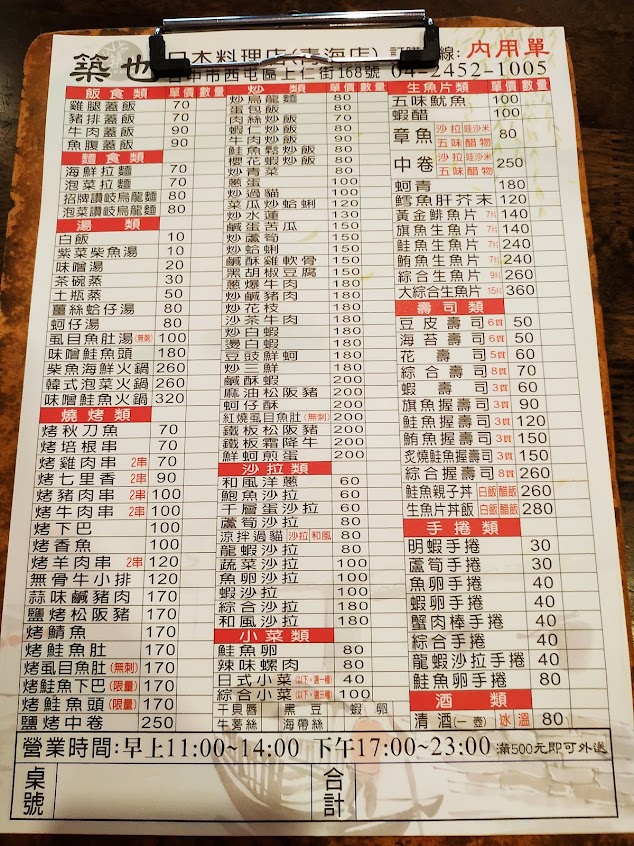 築也 日本料理店(青海店) 訂購專線: 內用單
台中市西屯區上仁街168號 04-2452-1005
飯食類 單價 數量
雞腿蓋飯 70
豬排蓋飯 70
牛肉蓋飯 90
魚腹蓋飯 90
麵食類
海鮮拉麵 70
泡菜拉麵 70
招牌讚岐烏龍麵 80
泡菜讚岐烏龍麵 80
湯類
白飯 10
紫菜柴魚湯 10
味噌湯 20
茶碗蒸 30
土瓶蒸 50
薑絲蛤仔湯 80
蚵仔湯 80
虱目魚肚湯(無刺) 100
味噌鮭魚頭 180
柴魚海鮮火鍋 260
韓式泡菜火鍋 260
味噌鮭魚火鍋 320
燒烤類
烤秋刀魚 70
烤培根串 70
烤雞肉串 2串 70
烤七里香 2串 90
烤豬肉串 2串 100
烤牛肉串 2串 100
烤下巴 100
烤香魚 100
烤羊肉串 2串 120
無骨牛小排 120
蒜味鹹豬肉 170
鹽烤松阪豬 170
烤鯖魚 170
烤鮭魚肚 170
烤虱目魚肚(無刺) 170
烤鮭魚下巴(限量) 170
烤鮭魚頭(限量) 170
鹽烤中卷 250
炒類 單價 數量
炒烏龍麵 80
蛋包飯 80
肉絲炒飯 70
蝦仁炒飯 80
牛肉炒飯 80
鮭魚鬆炒飯 80
櫻花蝦炒飯 80
炒青菜 80
蔥蛋 100
炒過貓 100
菜瓜炒蛤蜊 120
炒水蓮 130
鹹蛋苦瓜 150
炒蘆筍 150
炒蛤蜊 150
鹹酥雞軟骨 150
黑胡椒豆腐 150
蔥爆牛肉 180
炒鹹豬肉 180
炒花枝 180
沙茶牛肉 180
炒白蝦 180
燙白蝦 180
豆豉鮮蚵 180
炒三鮮 180
鹹酥蝦 200
麻油松阪豬 200
蚵仔酥 200
紅燒虱目魚肚(無刺) 200
鐵板松阪豬 200
鐵板霜降牛 200
鮮蚵煎蛋 200
沙拉類
和風洋蔥 60
鮑魚沙拉 60
千層蛋沙拉 60
蘆筍沙拉 80
涼拌過貓 沙拉 和風 80
龍蝦沙拉 80
蔬菜沙拉 100
魚卵沙拉 100
蝦沙拉 100
綜合沙拉 180
和風沙拉 180
小菜類
鮭魚卵 80
辣味螺肉 80
日式小菜 40
綜合小菜 100
干貝唇 黑豆 蝦卵
牛蒡絲 海帶絲
生魚片類 單價 數量
五味魷魚 100
蝦醋 100
章魚 沙拉 哇沙米 五味 醋物 80
中卷 沙拉 哇沙米 五味 醋物 250
蚵青 180
鱈魚肝芥末 120
黃金鯡魚片 7片 140
旗魚生魚片 7片 140
鮭魚生魚片 7片 240
鮪魚生魚片 7片 240
綜合生魚片 9片 260
大綜合生魚片 15片 360
壽司類
豆皮壽司 6貫 50
海苔壽司 6貫 50
花壽司 5貫 60
綜合壽司 8貫 70
蝦壽司 3貫 60
旗魚握壽司 3貫 90
鮭魚握壽司 3貫 120
鮪魚握壽司 3貫 150
炙燒鮭魚握壽司 3貫 150
綜合握壽司 8貫 260
鮭魚親子丼 白飯 醋飯 260
生魚片丼飯 白飯 醋飯 280
手捲類
明蝦手捲 30
蘆筍手捲 30
魚卵手捲 40
蝦卵手捲 40
蟹肉棒手捲 40
綜合手捲 40
龍蝦沙拉手捲 40
鮭魚卵手捲 80
酒類
清酒(一壺) 冰 溫 80
營業時間:早上11:00~14:00 下午17:00~23:00 滿500元即可外送
桌號 合計